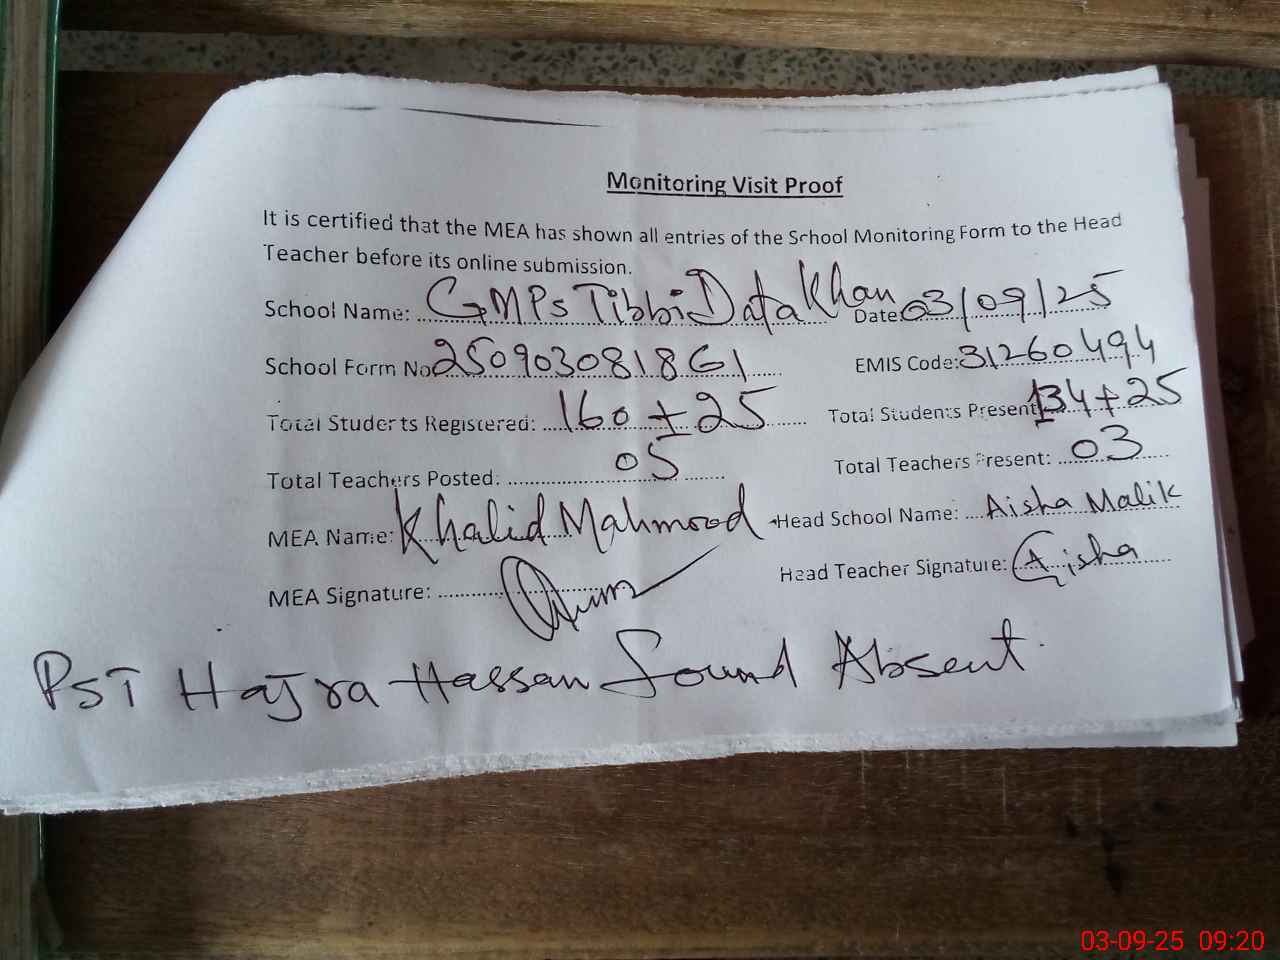 Monitoring Visit Proof
It is certified that the MEA has shown all entries of the School Monitoring Form to the Head
Teacher before its online submission.
School Name: GMPs Tibbi Data Khan Date: 03/09/25
School Form No 25090308 1861 EMIS Code: 31260494
Total Students Registered: 160+25 Total Students Present 134+25
Total Teachers Posted: 05 Total Teachers Present: 03
MEA Name: Khalid Mahmood Head School Name: Aisha Malik
MEA Signature: Head Teacher Signature: Aisha
PST Hajra Hassan Found Absent.
03-09-25 09:20